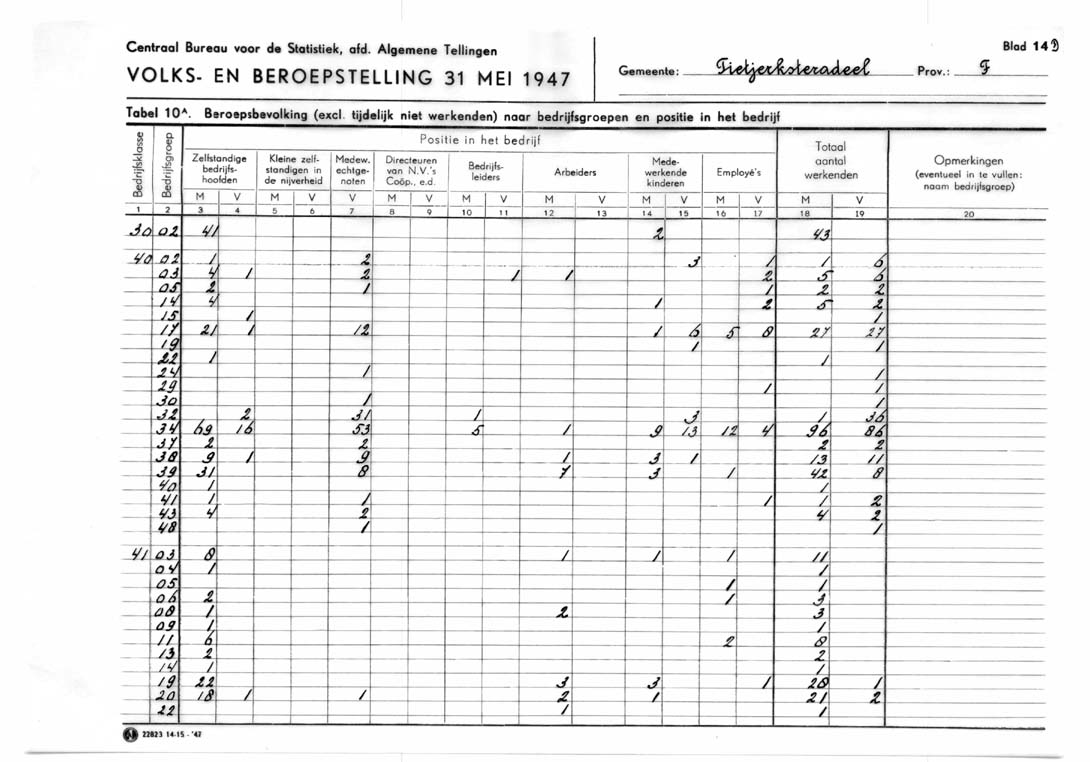 Centraal Bureau voor de Statistiek, afd. Algemene Tellingen
VOLKS- EN BEROEPSTELLING 31 MEI 1947
Gemeente: Tietjerksteradeel Prov.: F
Blad 14D
Tabel 10A. Beroepsbevolking (excl. tijdelijk niet werkenden) naar bedrijfsgroepen en positie in het bedrijf
Bedrijfsklasse Bedrijfsgroep Positie in het bedrijf Totaal aantal werkenden Opmerkingen (eventueel in te vullen: naam bedrijfsgroep)
Zelfstandige bedrijfs-hoofden Kleine zelf-standigen in de nijverheid Medew. echtge-noten Directeuren van N.V.'s Coöp., e.d. Bedrijfs-leiders Arbeiders Mede-werkende kinderen Employé's
M V M V V M V M V M V M V M V M V
1 2 3 4 5 6 7 8 9 10 11 12 13 14 15 16 17 18 19 20
30 02 41 2 43
40 02 1 2 3 1 1 6
03 4 1 2 1 1 2 5 6
05 2 1 1 2 2
14 4 1 2 5 2
15 1 1
17 21 1 12 1 6 5 8 27 27
19 1 1
22 1 1
24 1 1
29 1 1
30 1 1
32 2 31 1 3 1 36
34 69 16 53 5 1 9 13 12 4 96 86
37 2 2 2 2
38 9 1 9 1 3 1 13 11
39 31 8 7 3 1 42 8
40 1 1
41 1 1 1 1 2
43 4 2 4 2
48 1 1
41 03 8 1 1 1 11
04 1 1
05 1 1
06 2 1 3
08 1 2 3
09 1 1
11 6 2 8
13 2 2
14 1 1
19 22 3 3 1 28 1
20 18 1 1 2 1 21 2
22 1 1
22823 14-15-'47